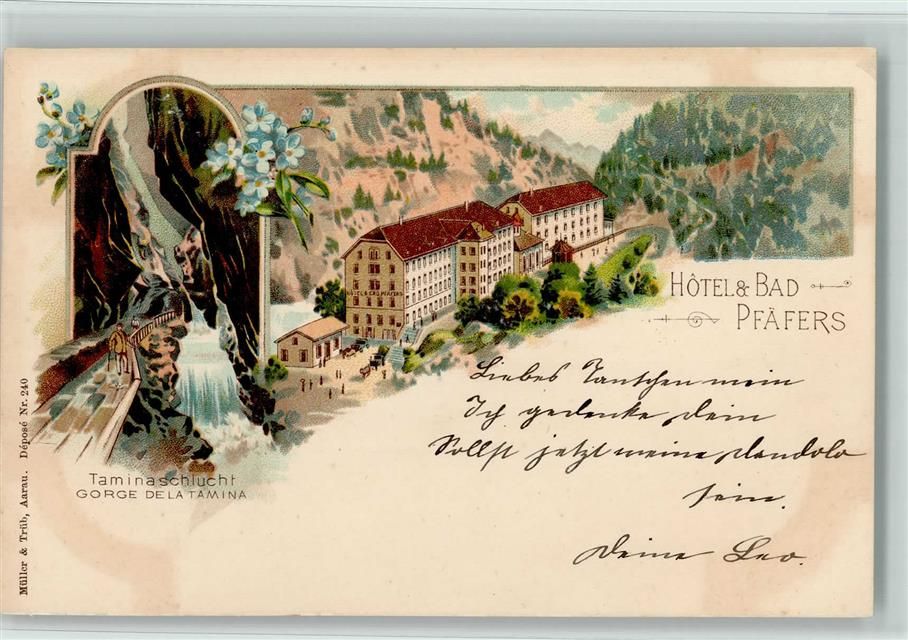 HÔTEL & BAD
PFÄFERS
HÔTEL & BAD PFÄFERS
Taminaschlucht
GORGE DE LA TAMINA
Müller & Trüb, Aarau. Déposé Nr. 240
Liebes Tantchen mein
Ich gedenke dein
Sollst jetzt meine
sein.
Deine Leo.